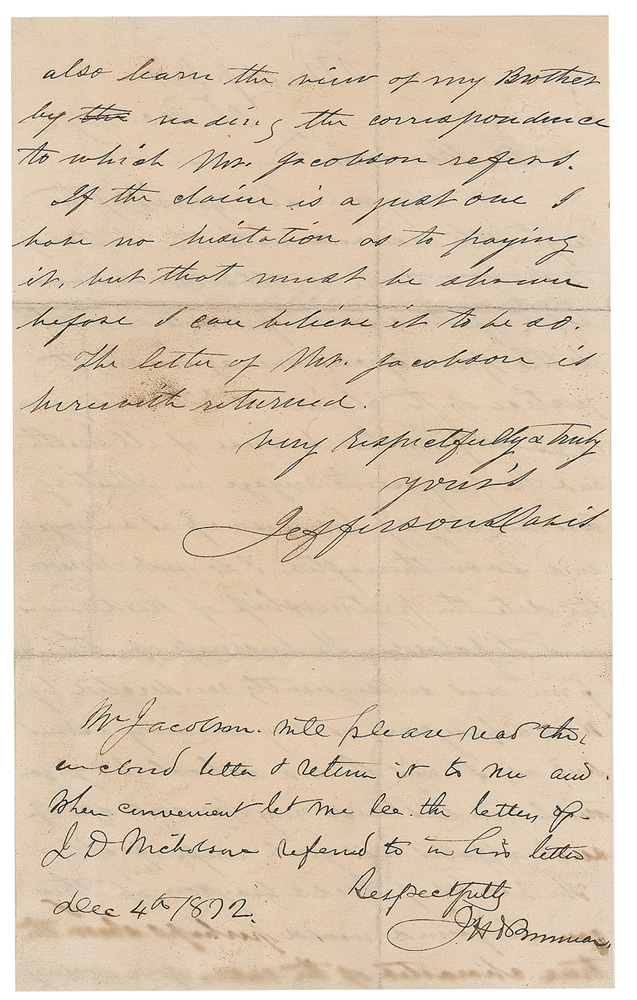 also learn the view of my Brother
by the reading the correspondence
to which Mr. Jacobson refers.
If the claim is a just one I
have no hesitation as to paying
it, but that must be shown
before I can believe it to be so.
The letter of Mr. Jacobson is
herewith returned.
very respectfully & truly
your's
Jefferson Davis
Mr Jacobson. will please read the
enclosed letter & return it to me and
when convenient let me see the letters of
J D Nicholson referred to in his letter
Respectfully
Dec 4th 1872.